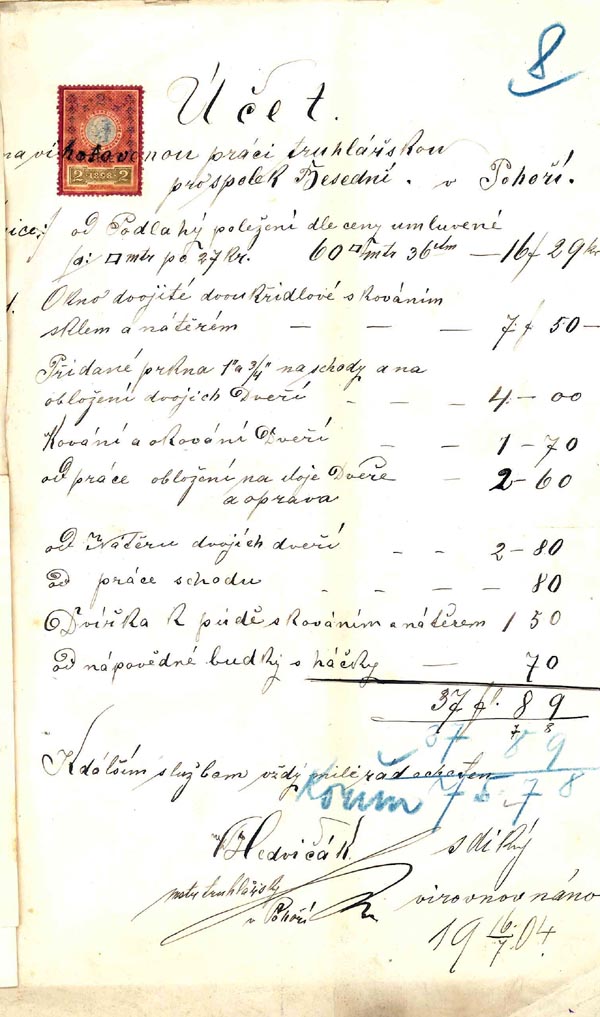 8
Účet.
2 1898 2
na vihotovenou práci truhlářskou
pro spolek Besední . v Pohoří.
od Podlahý položení dle ceny umluvené
a: □ mtr po 27 kr. 60 □ mtr 36 — 16 f 29 kr
Okno dvojité dvoukřidlové s kováním
sklem a nátěrém — — — 7. f 50 —
Přidané prkna 1" a 3/4" na schody a na
obložení dvojich Dveří — — 4 — 00
Kování a okování Dveří 1 — 70
od práce obložení na doje Dveře — 2 — 60
a oprava
od Nátěru dvojích dveří — — 2 — 80
od práce schodu — — — — 80
Dvířka k púdě s kováním a nátěrem 1 50
od nápovědné budky s háčky — 70
37 fl. 89
7 8
37 89
K dálším službam vždy milerád ochoten
Korun 75 78
Hedvičák s diký
mstr truhlářský
v Pohoří
virovnov náno
19 16/7 04.